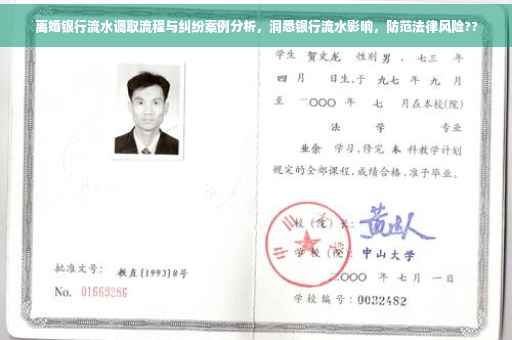 离婚银行流水调取流程与纠纷案例分析，洞悉银行流水影响，防范法律风险??
学生 贺文龙 性别 男 ，七三 年
四 月 日生，于 九七 年 九 月
至 二〇〇〇 年 七 月在本校(院)
法 学 专业
业余 学习，修完 本 科教学计划
规定的全部课程，成绩合格，准予毕业。
校 (院) 长：
学 校 (院)：中山大学
二〇〇〇 年 七 月 一 日
学校编号：0032482
批准文号： 教直(1993)8号
No. 01669286